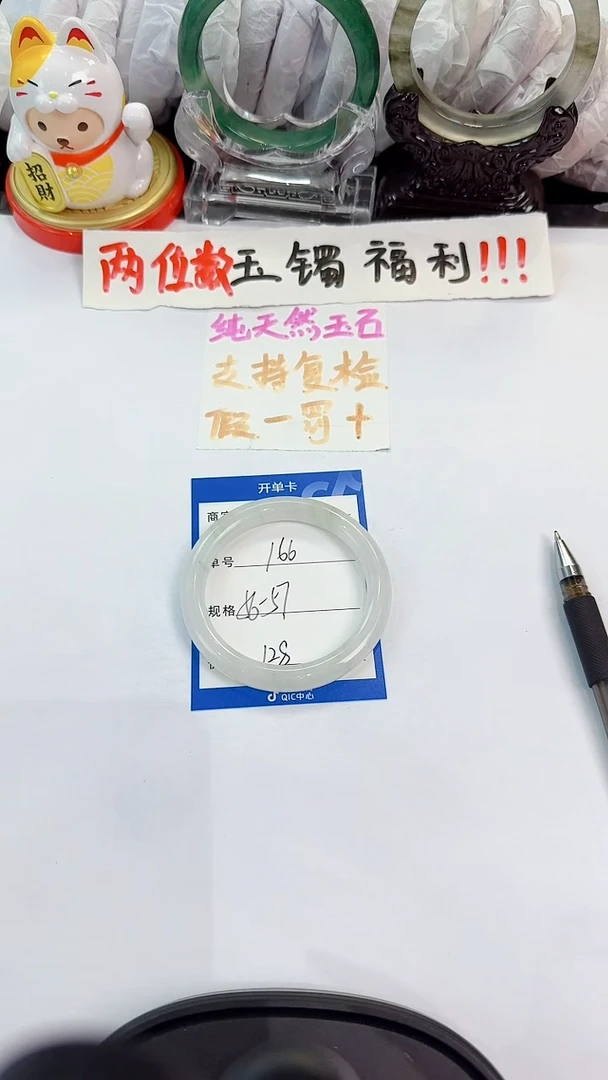 招財
两位数玉镯福利!!!
纯天然玉石
支持复检
假一罚十
开单卡
商家
单号 166
规格 56-57
128
QIC中心